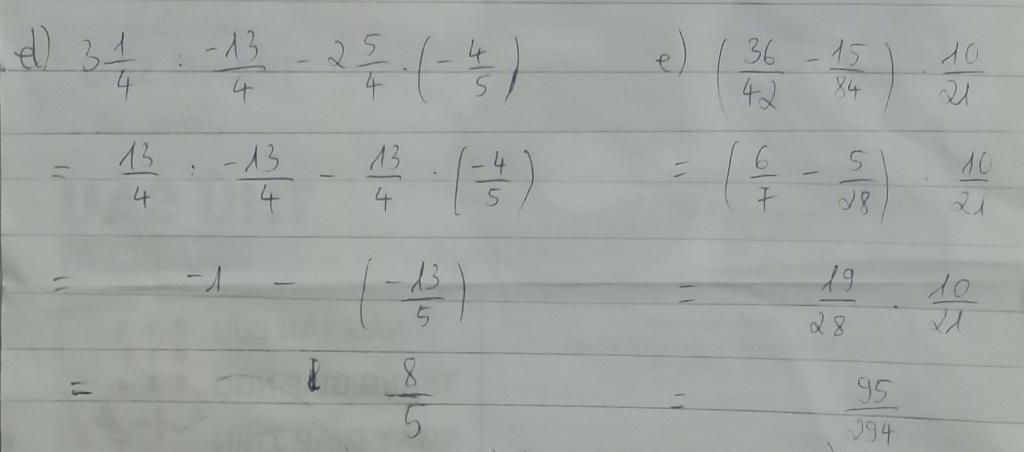 d) 3 1/4 : -13/4 - 2 5/4 . (- 4/5)
= 13/4 : -13/4 - 13/4 . (-4/5)
= -1 - (-13/5)
= 8/5
e) (36/42 - 15/84) . 10/21
= (6/7 - 5/28) . 10/21
= 19/28 . 10/21
= 95/294